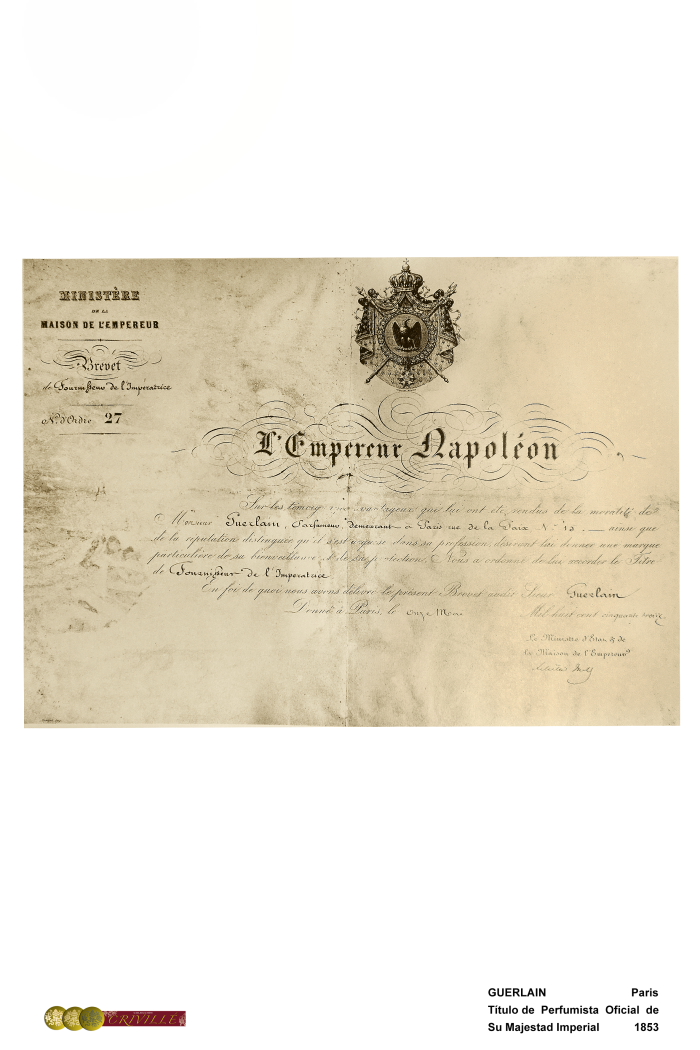 MINISTÈRE
DE LA
MAISON DE L'EMPEREUR
Brevet
de Fournisseur de l'Imperatrice
N.º d'Ordre 27
L'Empereur Napoléon
Sur les témoig avantageux que lui ont été rendus de la moralité du
Monsieur Guerlain, Parfumeur, demeurant à Paris rue de la Paix N.º 15 — ainsi que
de la réputation distinguée qu'il s'est acquise dans sa profession, désirant lui donner une marque
particulière de sa bienveillance et de sa protection, Nous a ordonné de lui accorder le Titre
de Fournisseur de l'Imperatrice
En foi de quoi nous avons délivré le présent Brevet Sieur Guerlain
Donné à Paris, le onze Mai Mil huit cent cinquante trois
Le Ministre d'Etat & de
la Maison de l'Empereur
CRIVILLÉ
GUERLAIN Paris
Título de Perfumista Oficial de
Su Majestad Imperial 1853